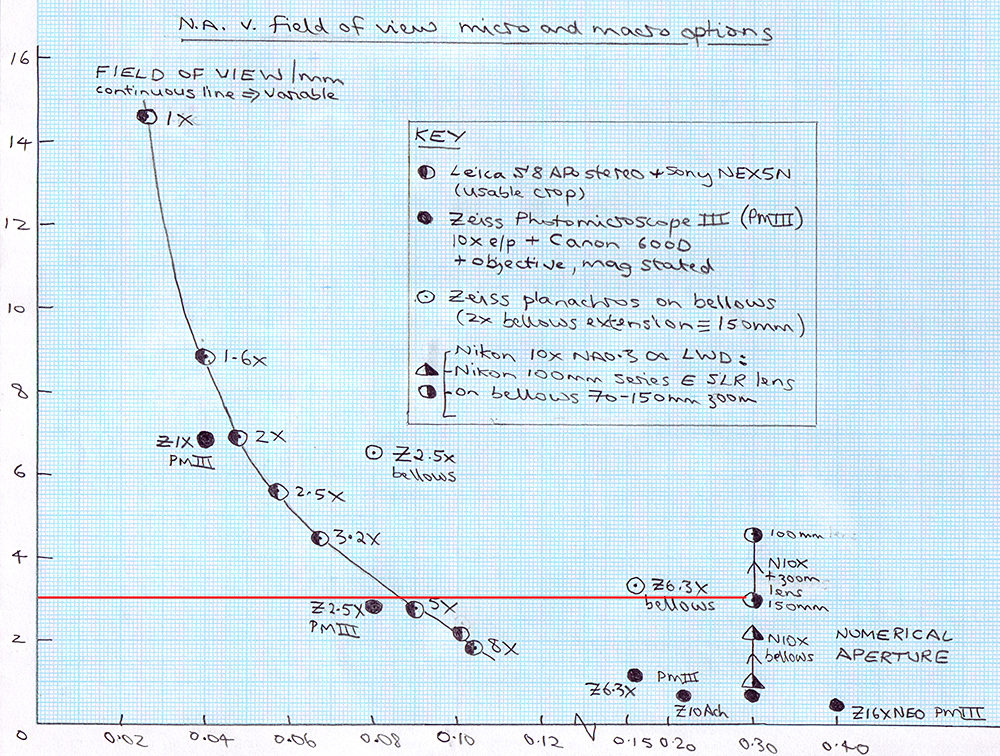 N.A. v. field of view micro and macro options
16
FIELD OF VIEW/mm
continuous line ⇒ variable
1X
14
KEY
Leica S8 APo stereo + Sony NEX5N
(usable crop)
Zeiss Photomicroscope III (PmIII)
10x e/p + Canon 600D
+ objective, mag stated
Zeiss planachros on bellows
(2x bellows extension ≡ 150mm)
Nikon 10x NA0.3 LWD:
Nikon 100mm series E SLR lens
on bellows 70-150mm zoom
12
10
1.6X
8
Z1X
PMIII
2X
Z2.5X
bellows
6
2.5X
3.2X
100mm lens
4
N10X
+zoom
lens
150mm
Z6.3X
bellows
Z2.5X
PMIII
5X
2
8X
N10X
bellows
NUMERICAL
APERTURE
Z6.3X
PMIII
Z10Ach
Z16XNEO PMIII
0
0.02
0.04
0.06
0.08
0.10
0.12
0.15
0.20
0.30
0.40